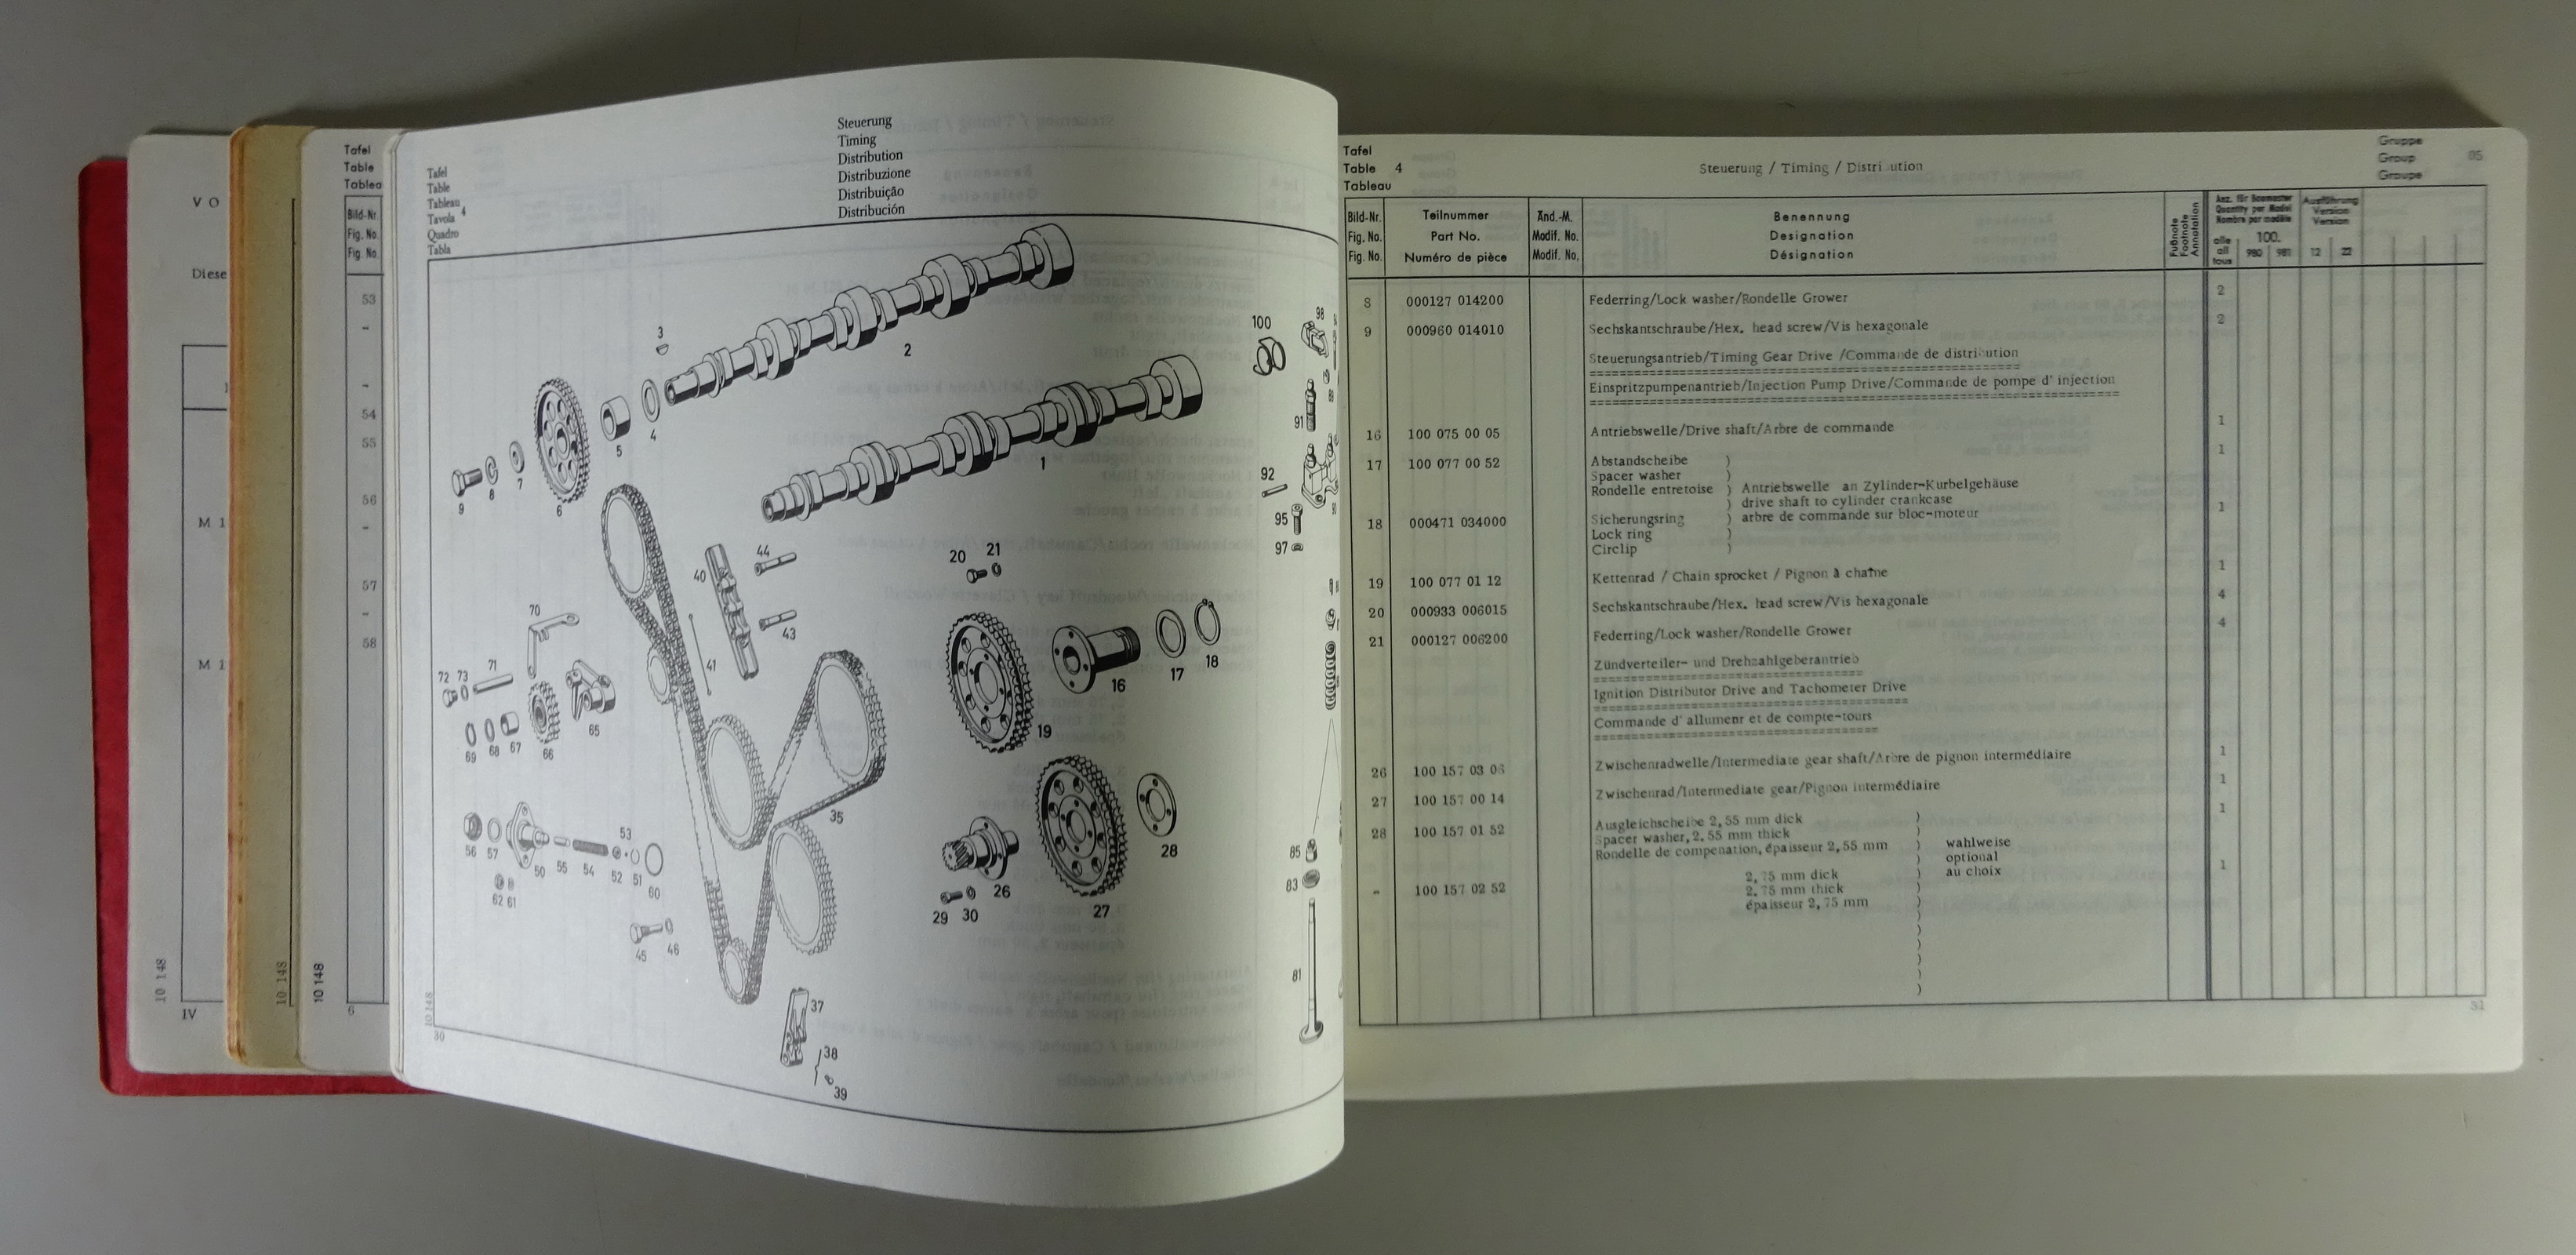 V O
Diese
M 1
M 1
10 148
IV
10 148
Tafel
Table
Tablea
Bild-Nr.
Fig. No.
Fig. No.
53
-
-
54
55
56
-
57
-
58
10 148
6
Steuerung
Timing
Distribution
Distribuzione
Distribuição
Distribución
Tafel
Table
Tableau
Tavola 4
Quadro
Tabla
3
2
100
98
4
5
1
91
7
8
9
6
92
95
97
44
40
20 21
43
70
41
71
72 73
17
18
16
65
19
69 68 67 66
35
28
53
56 57
50 55 54 52 51 60
26
85
83
62 61
29 30
27
45 46
81
37
38
39
10 148
30
Tafel
Table 4
Tableau
Steuerung / Timing / Distri ution
Gruppe
Group 05
Groupe
Bild-Nr. Teilnummer Änd.-M. Benennung
Fig. No. Part No. Modif. No. Designation
Fig. No. Numéro de pièce Modif. No. Désignation
Fußnote
Footnote
Annotation
Anz. für Baumuster
Quantity per Model
Nombre par modèle
alle
all
tous
100.
980 981
Ausführung
Version
Version
12 22
8 000127 014200 Federring/Lock washer/Rondelle Grower 2
9 000960 014010 Sechskantschraube/Hex. head screw/Vis hexagonale 2
Steuerungsantrieb/Timing Gear Drive /Commande de distribution
Einspritzpumpenantrieb/Injection Pump Drive/Commande de pompe d' injection
16 100 075 00 05 Antriebswelle/Drive shaft/Arbre de commande 1
17 100 077 00 52 Abstandscheibe ) 1
Spacer washer )
Rondelle entretoise ) Antriebswelle an Zylinder-Kurbelgehäuse
) drive shaft to cylinder crankcase
18 000471 034000 Sicherungsring ) arbre de commande sur bloc-moteur 1
Lock ring )
Circlip )
19 100 077 01 12 Kettenrad / Chain sprocket / Pignon à chaîne 1
20 000933 006015 Sechskantschraube/Hex. head screw/Vis hexagonale 4
21 000127 006200 Federring/Lock washer/Rondelle Grower 4
Zündverteiler- und Drehzahlgeberantrieb
Ignition Distributor Drive and Tachometer Drive
Commande d' allumeur et de compte-tours
26 100 157 03 06 Zwischenradwelle/Intermediate gear shaft/Arbre de pignon intermédiaire 1
27 100 157 00 14 Zwischenrad/Intermediate gear/Pignon intermédiaire 1
28 100 157 01 52 Ausgleichscheibe 2,55 mm dick ) 1
Spacer washer, 2.55 mm thick )
Rondelle de compenation, épaisseur 2,55 mm ) wahlweise
) optional
- 100 157 02 52 2,75 mm dick ) au choix 1
2.75 mm thick )
épaisseur 2,75 mm )
)
)
)
)
)
)
31